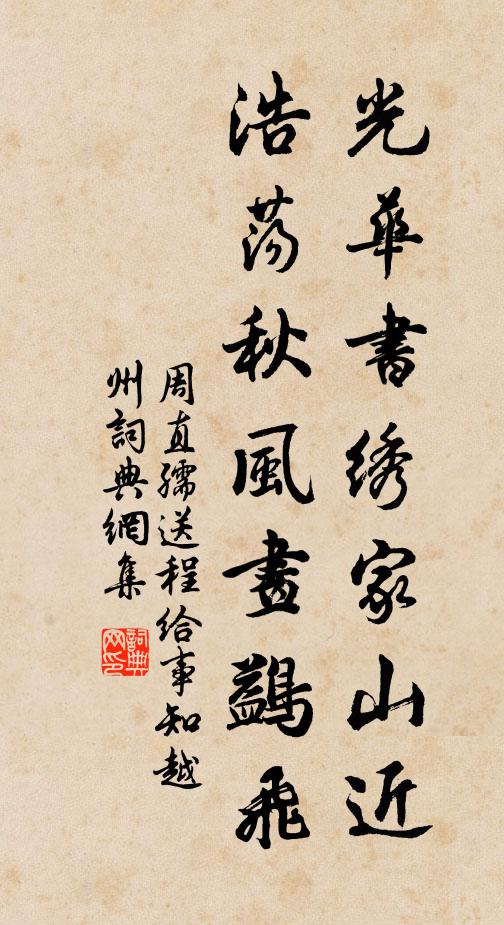 光華書綉家山近
浩蕩秋風畫鷁飛
周直孺送程給事知越
州詞典網集
詞典网印